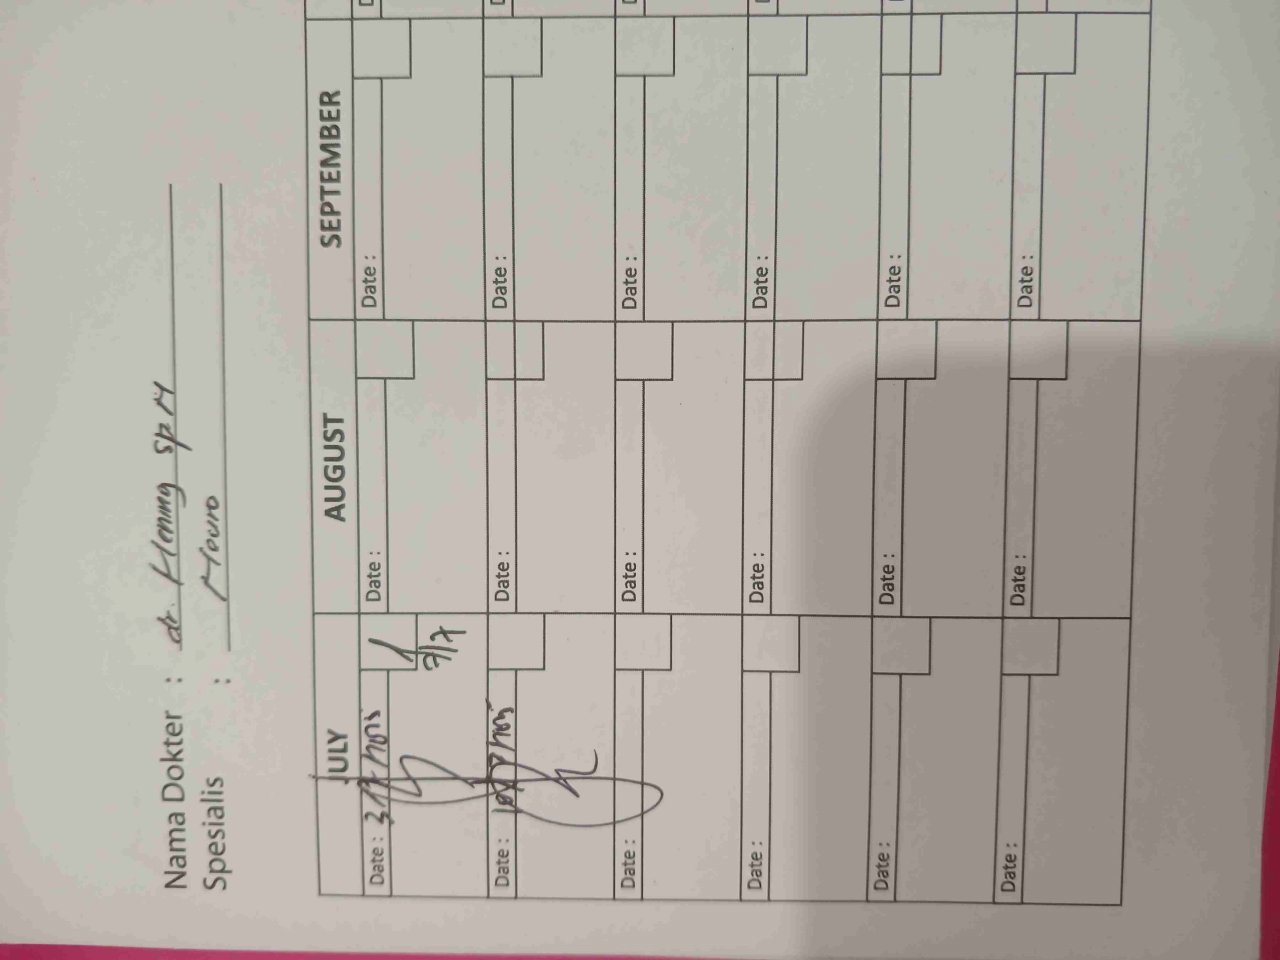 Nama Dokter : dr. Henny SpM
Spesialis :
JULY AUGUST SEPTEMBER
Date : Date : Date :
7/7
Date : Date : Date :
Date : Date : Date :
Date : Date : Date :
Date : Date : Date :
Date : Date : Date :